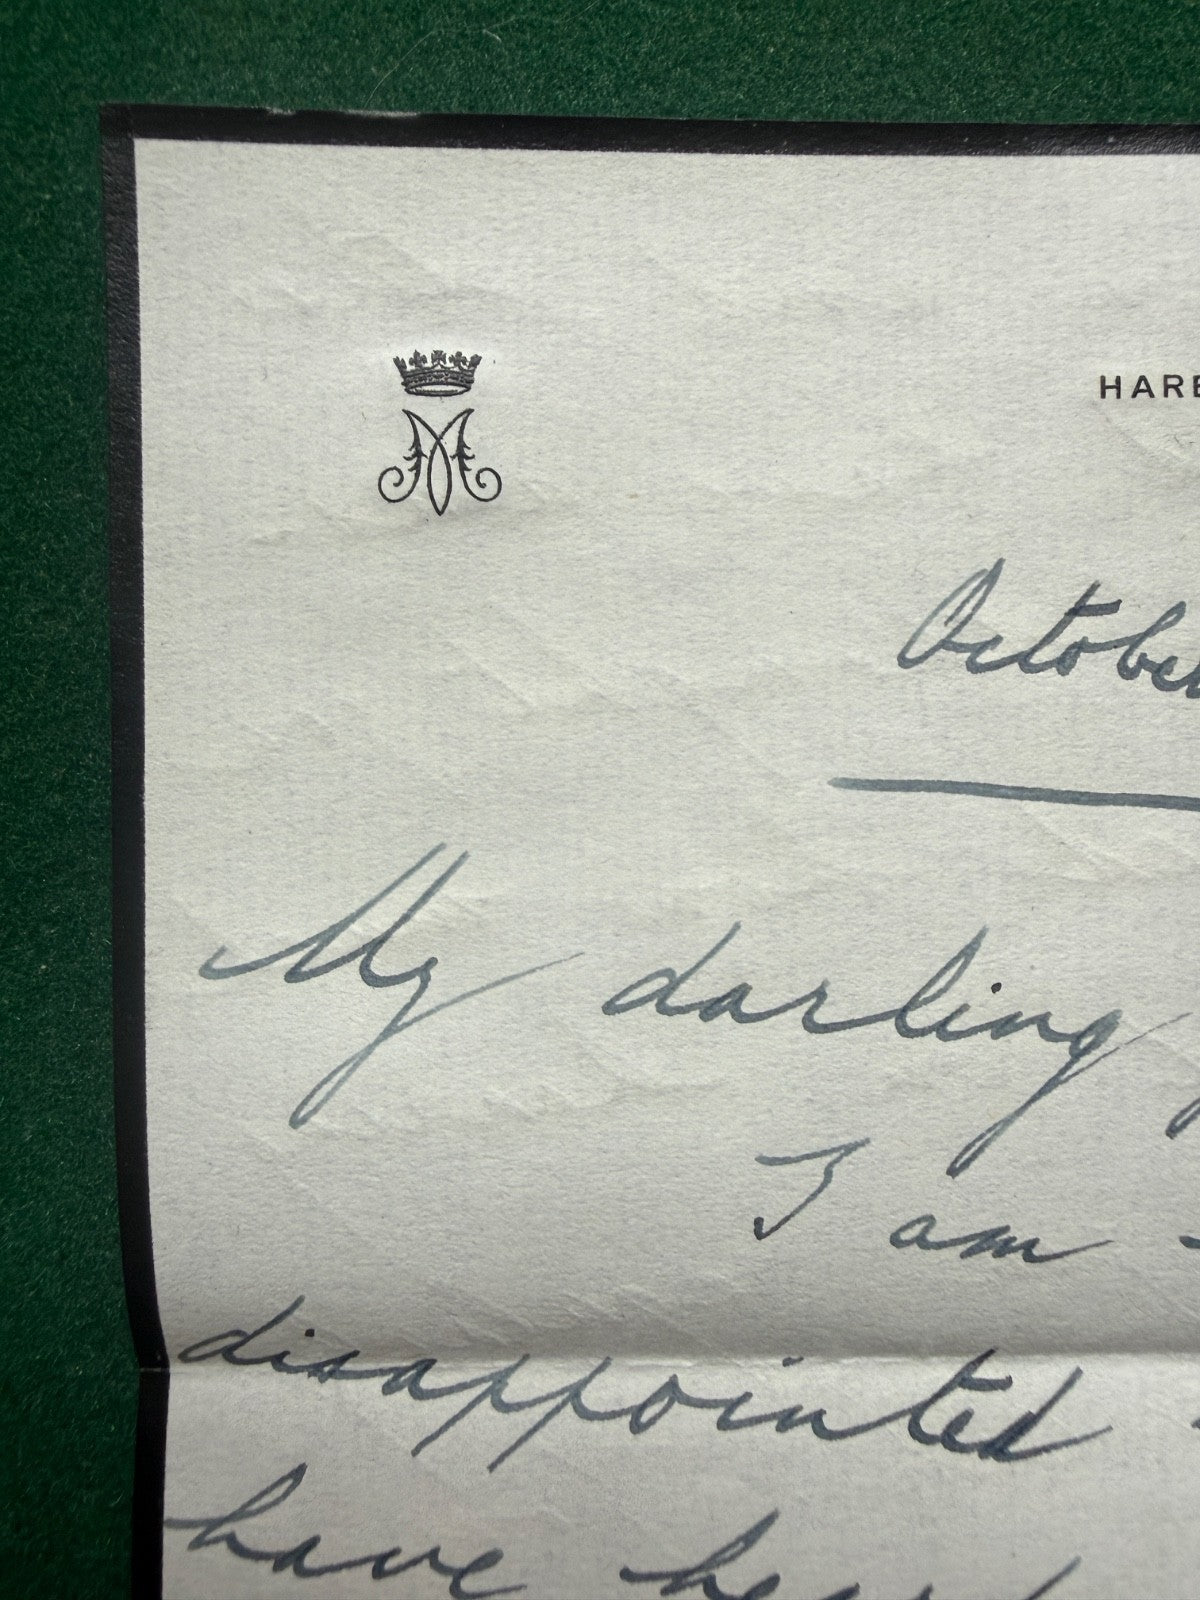 M
HARE
October
My darling
I am
disappointed
have hear